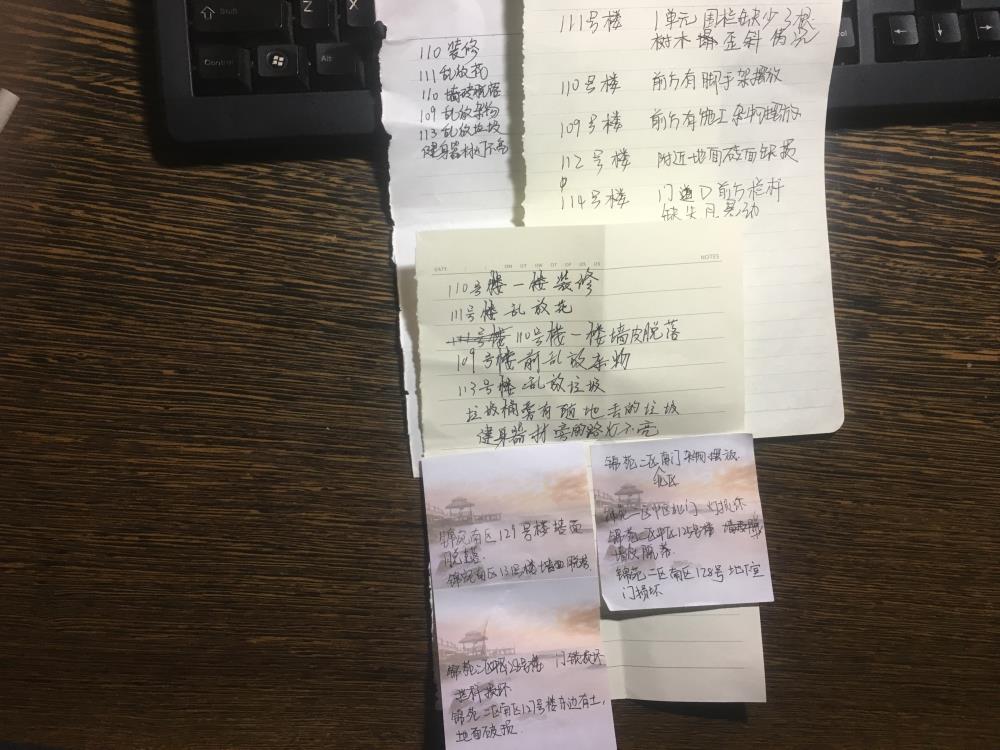 Shift
Z
X
Control
Alt
110 装修
111 乱放花
110 墙皮脱落
109 乱放杂物
113 乱放垃圾
健身器材灯不亮
111号楼 1单元围栏缺少3根
树木 歪斜 情况
110号楼 前方有脚手架摆放
109号楼 前方有施工杂物摆放
112号楼 附近地面砖面缺损
114号楼 门道口前方栏杆
缺失且晃动
DATE
NOTES
110号楼一楼装修
111号楼乱放花
110号楼一楼墙皮脱落
109号楼前乱放杂物
113号楼乱放垃圾
垃圾桶旁有随地丢的垃圾
健身器材旁的路灯不亮
锦苑南区129号楼墙面
脱落
锦苑南区131号楼墙面脱落
锦苑二区南门杂物摆放
北区
锦苑二区中区北门 灯损坏
锦苑二区中区125号楼
墙皮脱落
锦苑二区南区128号地下室
门损坏
锦苑二区 号楼 门锁损坏
栏杆损坏
锦苑二区南区127号楼东边有土，
地面破损